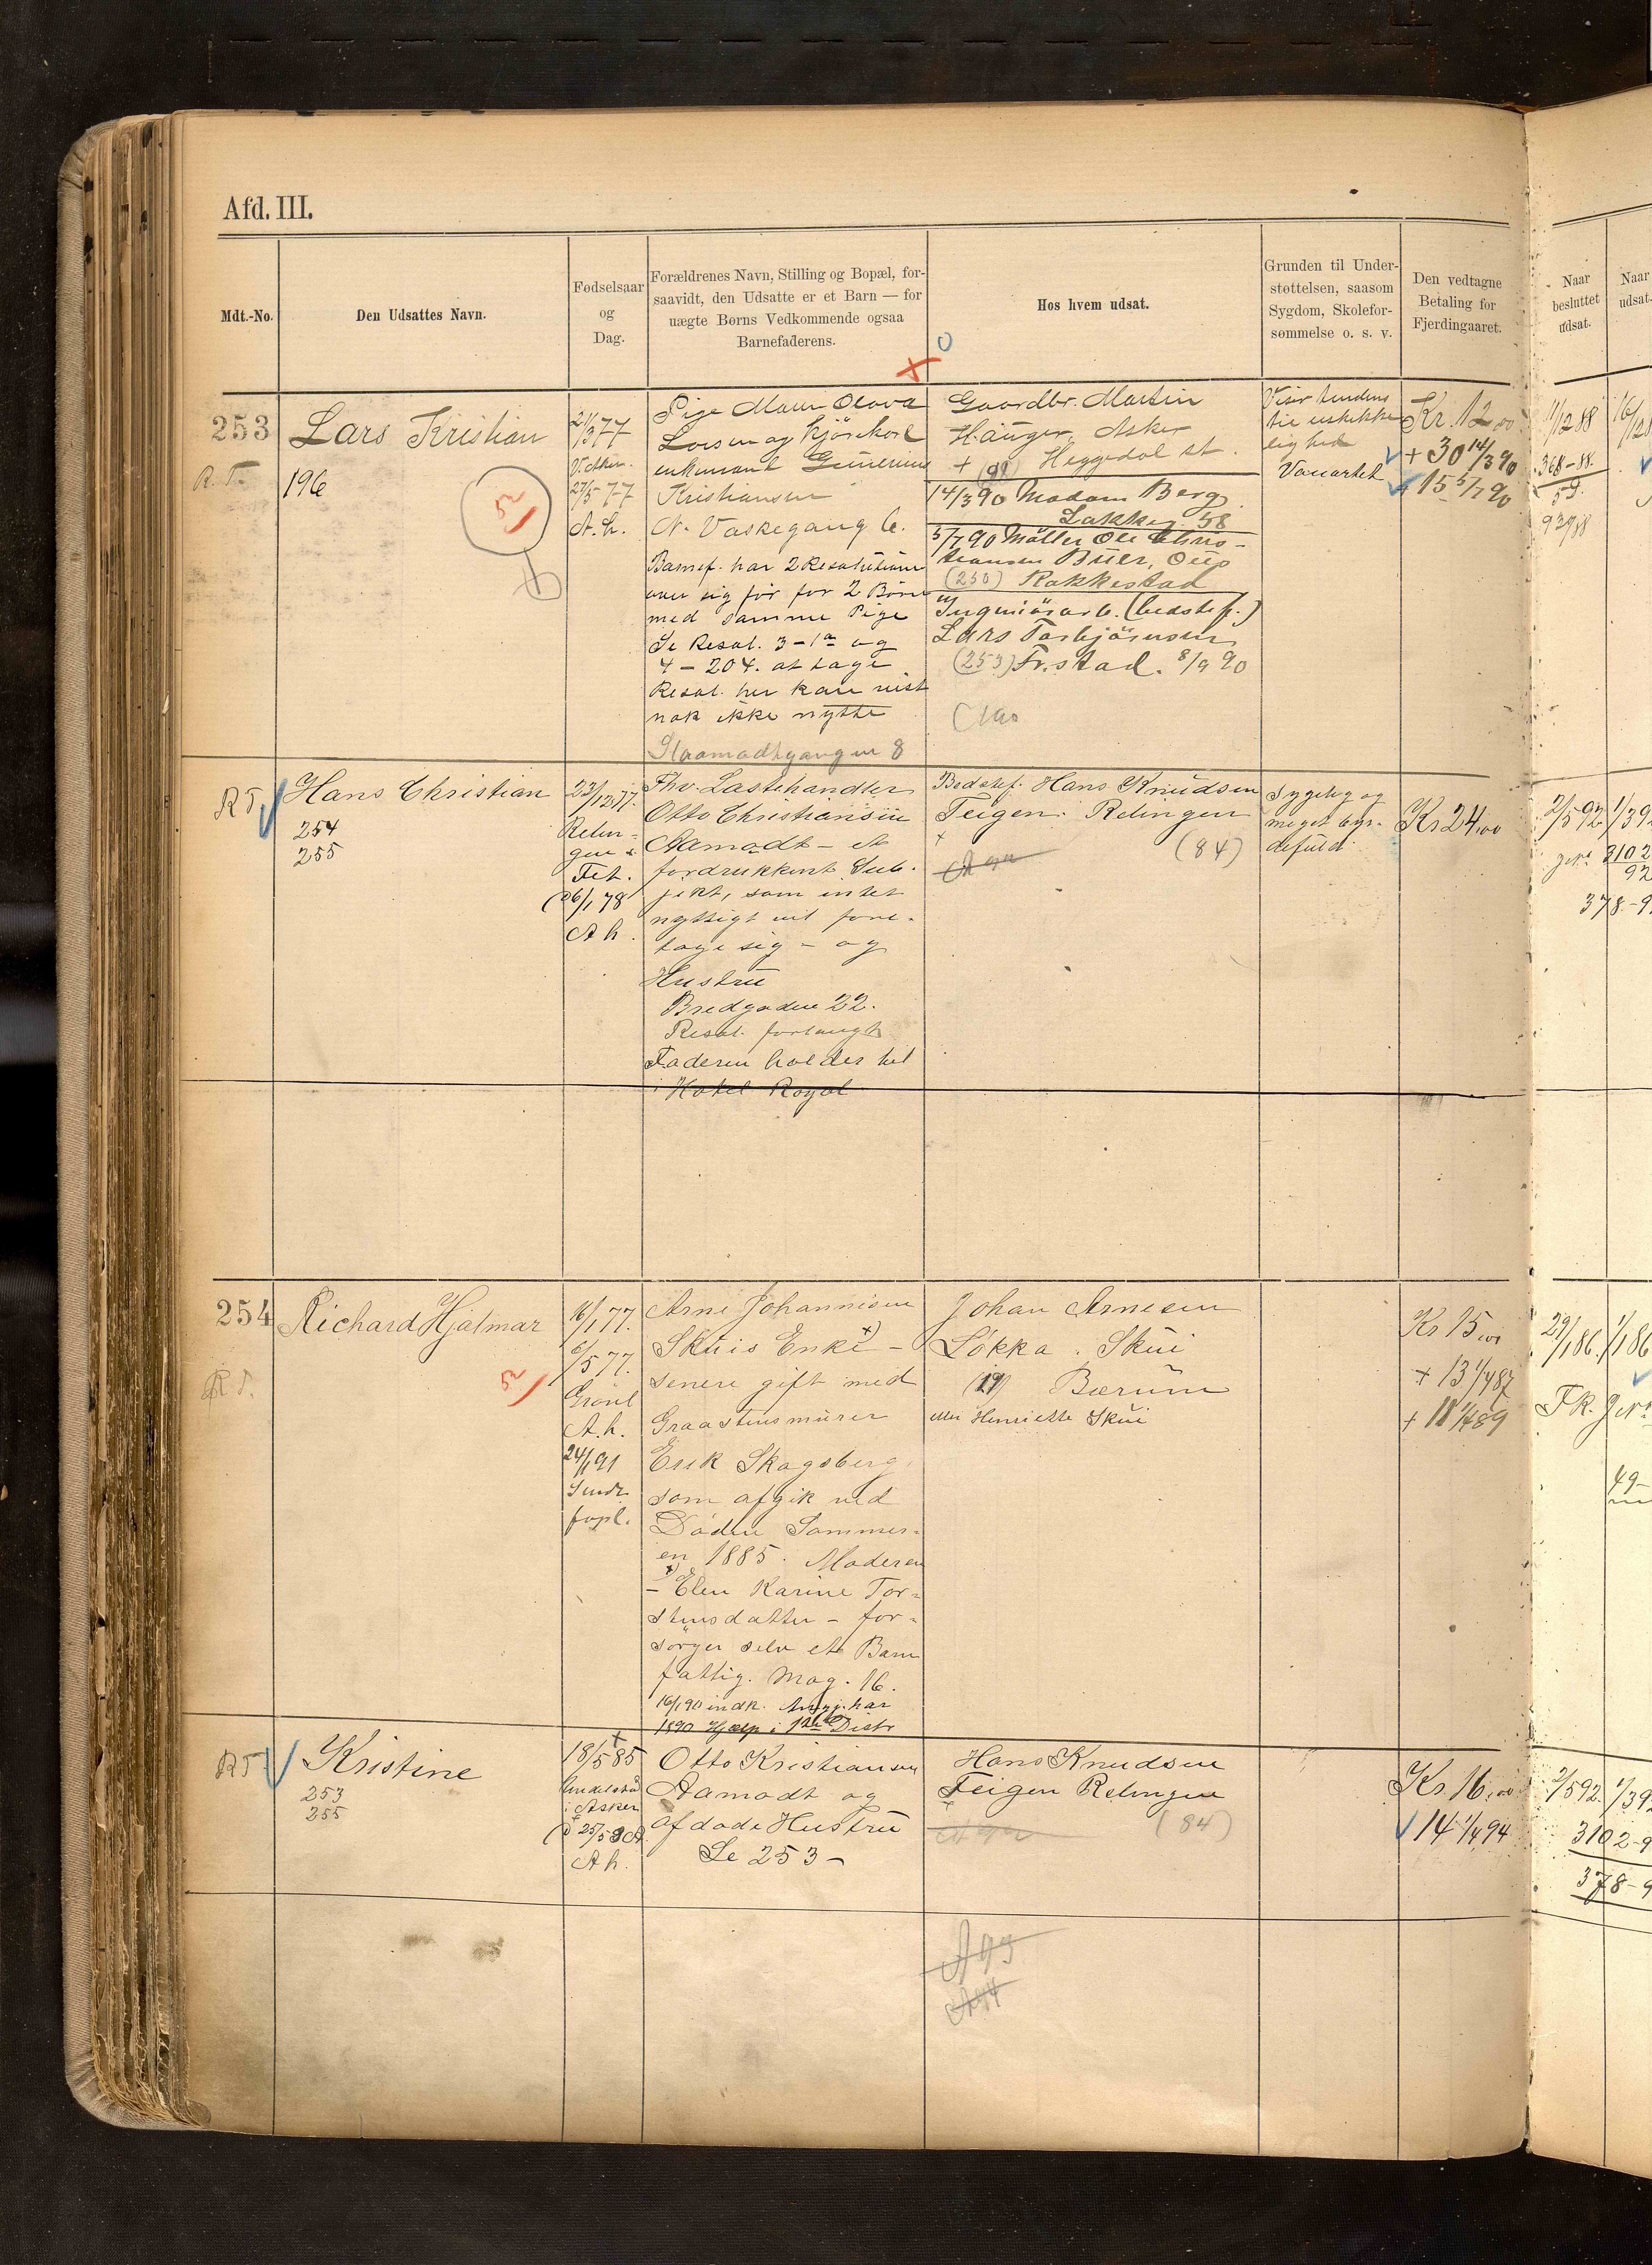 Afd. III.
Mdt.-No.
Den Udsattes Navn.
Fødselsaar
og
Dag.
Forældrenes Navn, Stilling og Bopæl, for-
saavidt, den Udsatte er et Barn — for
uægte Børns Vedkommende ogsaa
Barnefaderens.
Hos hvem udsat.
Grunden til Under-
støttelsen, saasom
Sygdom, Skolefor-
sømmelse o. s. v.
Den vedtagne
Betaling for
Fjerdingaaret.
Naar
besluttet
udsat.
Naar
udsat.
253
R. T.
Lars Kristian
196
5
21/3 77
V. Aker
27/5 77
A. h.
Pige Maren Olava
Larsen og Kjørekarl
enkemand Gunerius
Kristiansen
N. Vaskegang 6.
Barnef. har 2 Resolutioner
over sig før for 2 Børn
med samme Pige
Se Resol. 3 - 1a og
4 - 204. at tage
Resol. her kan vist
nok ikke nytte
Gaardbr. Martin
Hauger, Asker
+ (91) Heggedal st.
14/3 90 Madam Berg
Lakkeg. 58
5/7 90 Møller Ole Chris-
tiansen Buer, Øiis
(250) Rakkestad
Ingeniørarb. (bedstef.)
Lars Torbjørnsen
(253) Fr.stad. 8/9 90
Viser tendens
til uskikke
lighed
Vanartet
Kr. 12,00
+ 30 14/3 90
15 5/7 90
11/12 88
368-88.
59.
929/88
16/12 8
R T.
Hans Christian
254
255
23/12 77.
Relin-
gen &
Fet.
(D 6/1 78
A h.
Fhv. Lastehandler
Otto Christiansen
Aamodt - et
fordrukkent Sub-
jekt, som intet
nyttigt vil fore-
tage sig - og
Hustru
Bredgaden 22.
Resol. forlangt
Faderen holder til
i Hotel Royal
Bedstef. Hans Knudsen
Teigen. Relingen
(84)
Sygelig og
meget byr-
defuld.
Kr 24,00
2/5 92
1/3 9
3102
92
378-9
254
R T.
Richard Hjalmar
5
16/1 77.
6/5 77.
Grønl
A. h.
24/1 91
Arne Johannesen
Skuis Enke x) -
senere gift med
Graastensmurer
Erik Skogsberg
som afgik ved
Døden Sommer-
en 1885. Moderen
x) - Elen Karine Tor-
stensdatter - for-
sørger selv et Barn
fattig. Mag. 16.
Johan Arnesen
Løkka. Skui
(19) Bærum
eller Henriette Skui
Kr 15,00
+ 13 1/4 87
+ 11 1/4 89
29/1 86.
1/1 86
F k.
49-
R T.
Kristine
253
255
18/5 85
i Asker
A h.
Otto Kristiansen
Aamodt og
afdøde Hustru
Se 253 -
Hans Knudsen
Teigen Relingen
(84)
A 93
Kr. 16,00
14 1/4 94
2/5 92.
1/3 9
3102-9
378-9